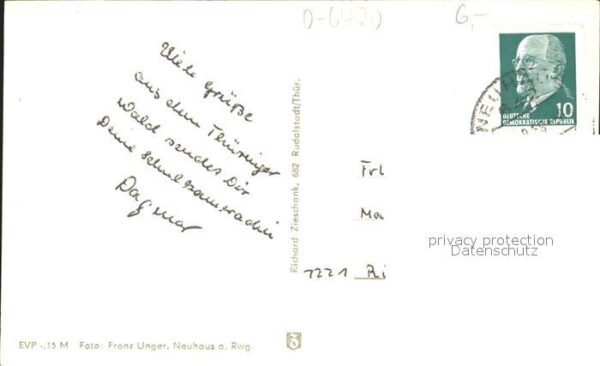 D-6420
6,-
Viele Grüße
aus dem Thüringer
Wald sendet Dir
Deine Schulkameradin
Dagmar
Richard Zieschank, 682 Rudolstadt/Thür.
NEUHA
10
DEUTSCHE
DEMOKRATISCHE REPUBLIK
Frl
Ma
7221 Ri
privacy protection
Datenschutz
EVP -,15 M Foto: Franz Unger, Neuhaus a. Rwg.